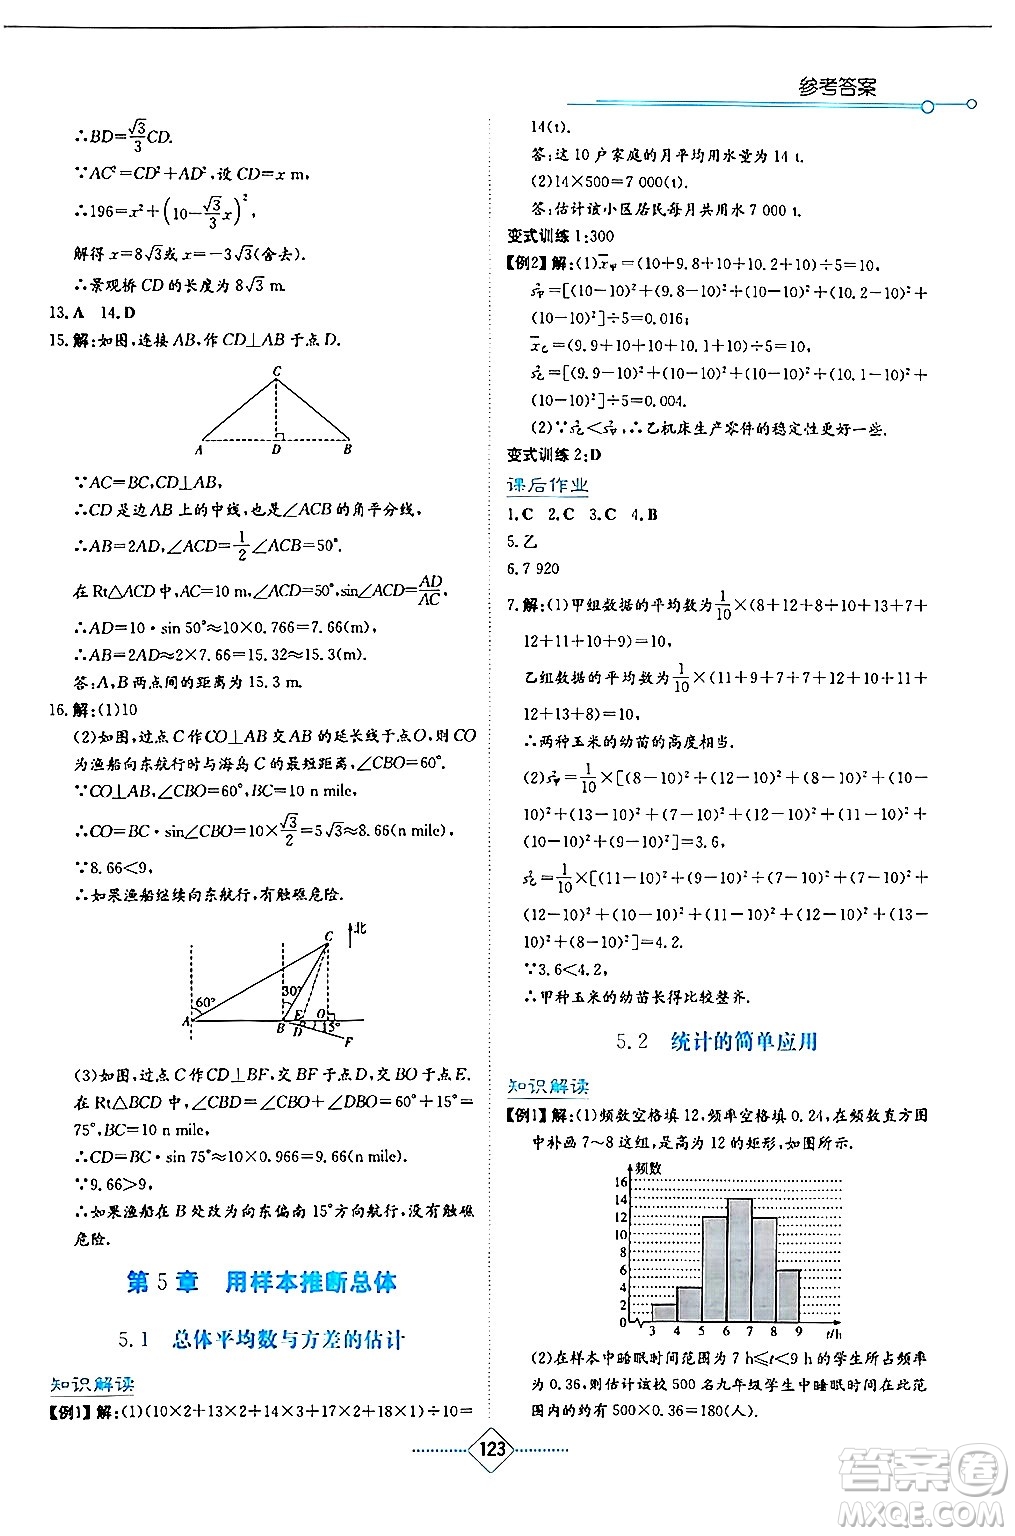 参考答案
∴BD=√3/3 CD.
∵AC²=CD²+AD²,设 CD=x m,
∴196=x²+(10-√3/3 x)²,
解得 x=8√3或 x=-3√3(舍去).
∴景观桥 CD 的长度为 8√3 m.
13.A 14.D
15.解:如图,连接 AB,作 CD⊥AB 于点 D.
C
A D B
∵AC=BC,CD⊥AB,
∴CD 是边 AB 上的中线,也是∠ACB 的角平分线,
∴AB=2AD,∠ACD=1/2∠ACB=50°.
在 Rt△ACD 中,AC=10 m,∠ACD=50°,sin∠ACD=AD/AC,
∴AD=10·sin 50°≈10×0.766=7.66(m).
∴AB=2AD≈2×7.66=15.32≈15.3(m).
答:A,B 两点间的距离为 15.3 m.
16.解:(1)10
(2)如图,过点 C 作 CO⊥AB 交 AB 的延长线于点 O,则 CO
为渔船向东航行时与海岛 C 的最短距离,∠CBO=60°.
∵CO⊥AB,∠CBO=60°,BC=10 n mile,
∴CO=BC·sin∠CBO=10×√3/2=5√3≈8.66(n mile).
∵8.66<9,
∴如果渔船继续向东航行,有触礁危险.
C 北
60° 30°
A B E D O 15° F
(3)如图,过点 C 作 CD⊥BF,交 BF 于点 D,交 AB 于点 E.
在 Rt△BCD 中,∠CBD=∠CBO+∠DBO=60°+15°=
75°,BC=10 n mile,
∴CD=BC·sin 75°≈10×0.966=9.66(n mile).
∵9.66>9,
∴如果渔船在 B 处改为向东偏南 15°方向航行,没有触礁
危险.
第 5 章 用样本推断总体
5.1 总体平均数与方差的估计
知识解读
【例1】解:(1)(10×2+13×2+14×3+17×2+18×1)÷10=
14(t).
答:这 10 户家庭的月平均用水量为 14 t.
(2)14×500=7 000(t).
答:估计该小区居民每月共用水 7 000 t.
变式训练 1:300
【例2】解:(1)x̄甲=(10+9.8+10+10.2+10)÷5=10,
s²甲=[(10-10)²+(9.8-10)²+(10-10)²+(10.2-10)²+
(10-10)²]÷5=0.016;
x̄乙=(9.9+10+10+10.1+10)÷5=10,
s²乙=[(9.9-10)²+(10-10)²+(10-10)²+(10.1-10)²+
(10-10)²]÷5=0.004.
(2)∵s²乙<s²甲,∴乙机床生产零件的稳定性更好一些.
变式训练 2:D
课后作业
1.C 2.C 3.C 4.B
5.乙
6.7 920
7.解:(1)甲组数据的平均数为1/10×(8+12+8+10+13+7+
12+11+10+9)=10,
乙组数据的平均数为1/10×(11+9+7+7+12+10+11+
12+13+8)=10.
∴两种玉米的幼苗的高度相当.
(2)s²甲=1/10×[(8-10)²+(12-10)²+(8-10)²+(10-
10)²+(13-10)²+(7-10)²+(12-10)²+(11-10)²+
(10-10)²+(9-10)²]=3.6,
s²乙=1/10×[(11-10)²+(9-10)²+(7-10)²+(7-10)²+
(12-10)²+(10-10)²+(11-10)²+(12-10)²+(13-
10)²+(8-10)²]=4.2.
∵3.6<4.2,
∴甲种玉米的幼苗长得比较整齐.
5.2 统计的简单应用
知识解读
【例1】解:(1)频数空格填 12,频率空格填 0.24,在频数直方图
中补画 7～8 这组,是高为 12 的矩形,如图所示.
频数
16
14
12
10
8
6
4
2
0 3 4 5 6 7 8 9 t/h
(2)在样本中睡眠时间范围为 7 h≤t<9 h 的学生所占频率
为 0.36,则估计该校 500 名九年级学生中睡眠时间在此范
围内的约有 500×0.36=180(人).
123
答案圈
MXQE.COM